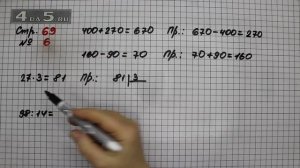 4 DA 5.RU
Стр. 69 400+270=670 Пр.: 670-400=270
№ 6 160-90=70 Пр.: 70+90=160
27·3=81 Пр.: 81 3
98:14=